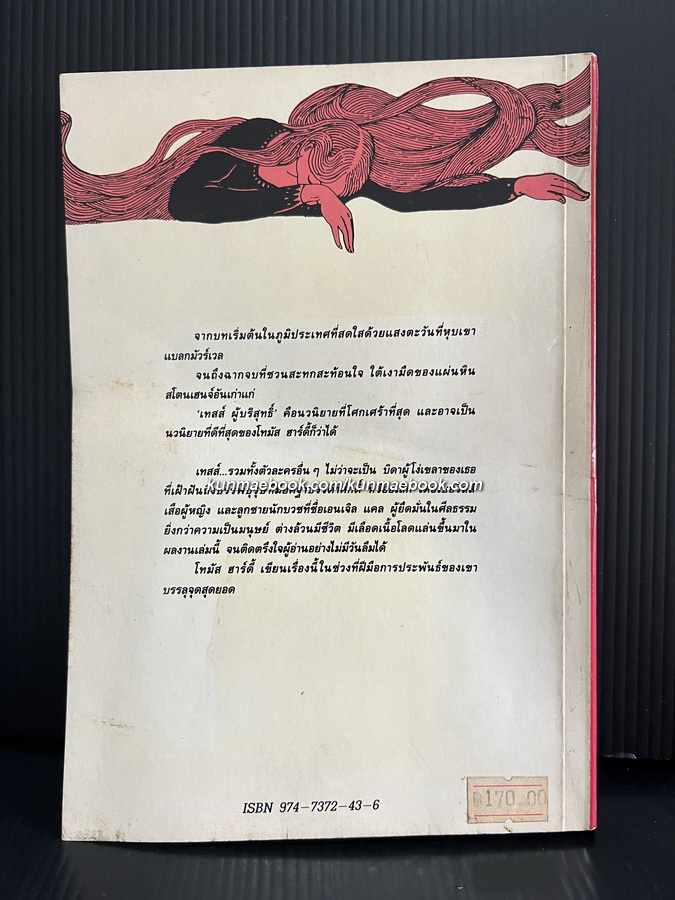 จากบทเริ่มต้นในภูมิประเทศที่สดใสด้วยแสงตะวันที่หุบเขา
แบลกมัวร์เวล
จนถึงฉากจบที่ชวนสะทกสะท้อนใจ ใต้เงามืดของแผ่นหิน
สโตนเฮนจ์อันเก่าแก่
'เทสส์ ผู้บริสุทธิ์' คือนวนิยายที่โศกเศร้าที่สุด และอาจเป็น
นวนิยายที่ดีที่สุดของโทมัส ฮาร์ดี้ก็ว่าได้
เทสส์...รวมทั้งตัวละครอื่น ๆ ไม่ว่าจะเป็น บิดาผู้โง่เขลาของเธอ
ที่เฝ้าฝันถึงบรรพบุรุษ
kunmaebook.com/kunmaebook.com
เสือผู้หญิง และลูกชายนักบวชที่ชื่อเอนเจิล แคล ผู้ยึดมั่นในศีลธรรม
ยิ่งกว่าความเป็นมนุษย์ ต่างล้วนมีชีวิต มีเลือดเนื้อโลดแล่นขึ้นมาใน
ผลงานเล่มนี้ จนติดตรึงใจผู้อ่านอย่างไม่มีวันลืมได้
โทมัส ฮาร์ดี้ เขียนเรื่องนี้ในช่วงที่ฝีมือการประพันธ์ของเขา
บรรลุจุดสุดยอด
ISBN 974-7372-43-6
฿170.00